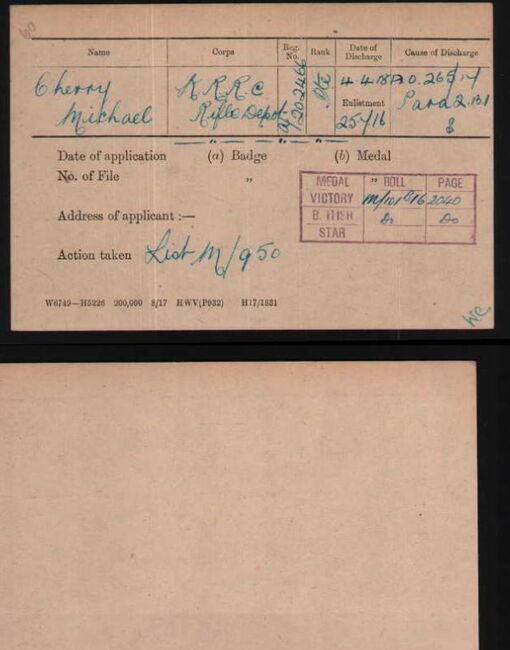 Name Corps Reg. No. Rank Date of Discharge Cause of Discharge
Cherry K.R.R.C 20.2466 Pte 4.4.18
Enlistment Para 2.B.I
Michael Rifle Depot 25/7/16
Date of application (a) Badge (b) Medal
No. of File "
MEDAL " ROLL PAGE
VICTORY 2040
Address of applicant :—
B ITISH Do Do
STAR
Action taken List M/950
W6749—H5226 200,000 8/17 HWV(P932) H17/1831
W.C.